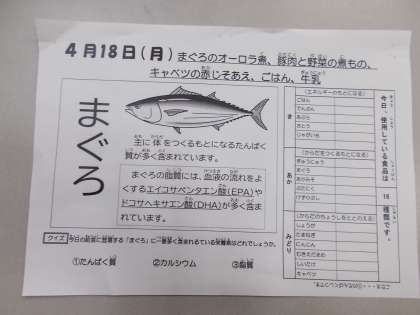 4月18日(月) まぐろのオーロラ煮、豚肉と野菜の煮もの、
キャベツの赤じそあえ、ごはん、牛乳
まぐろ
主に体をつくるもとになるたんぱく
質が多く含まれています。
まぐろの脂質には、血液の流れをよ
くするエイコサペンタエン酸(EPA)や
ドコサヘキサエン酸(DHA)が多く含ま
れています。
クイズ 今日の給食に登場する「まぐろ」に一番多く含まれている栄養素はどれでしょうか。
①たんぱく質 ②カルシウム ③脂質
今日、使用している食品は
16
種類です。
き
(エネルギーのもとになる)
ごはん
でんぷん
あぶら
さとう
じゃがいも
あか
(からだをつくるもとになる)
ぎゅうにゅう
まぐろ
あかみそ
ぶたにく
みどり
(からだのちょうしをととのえる)
しょうが
たまねぎ
にんじん
むきえだまめ
しいたけ
キャベツ